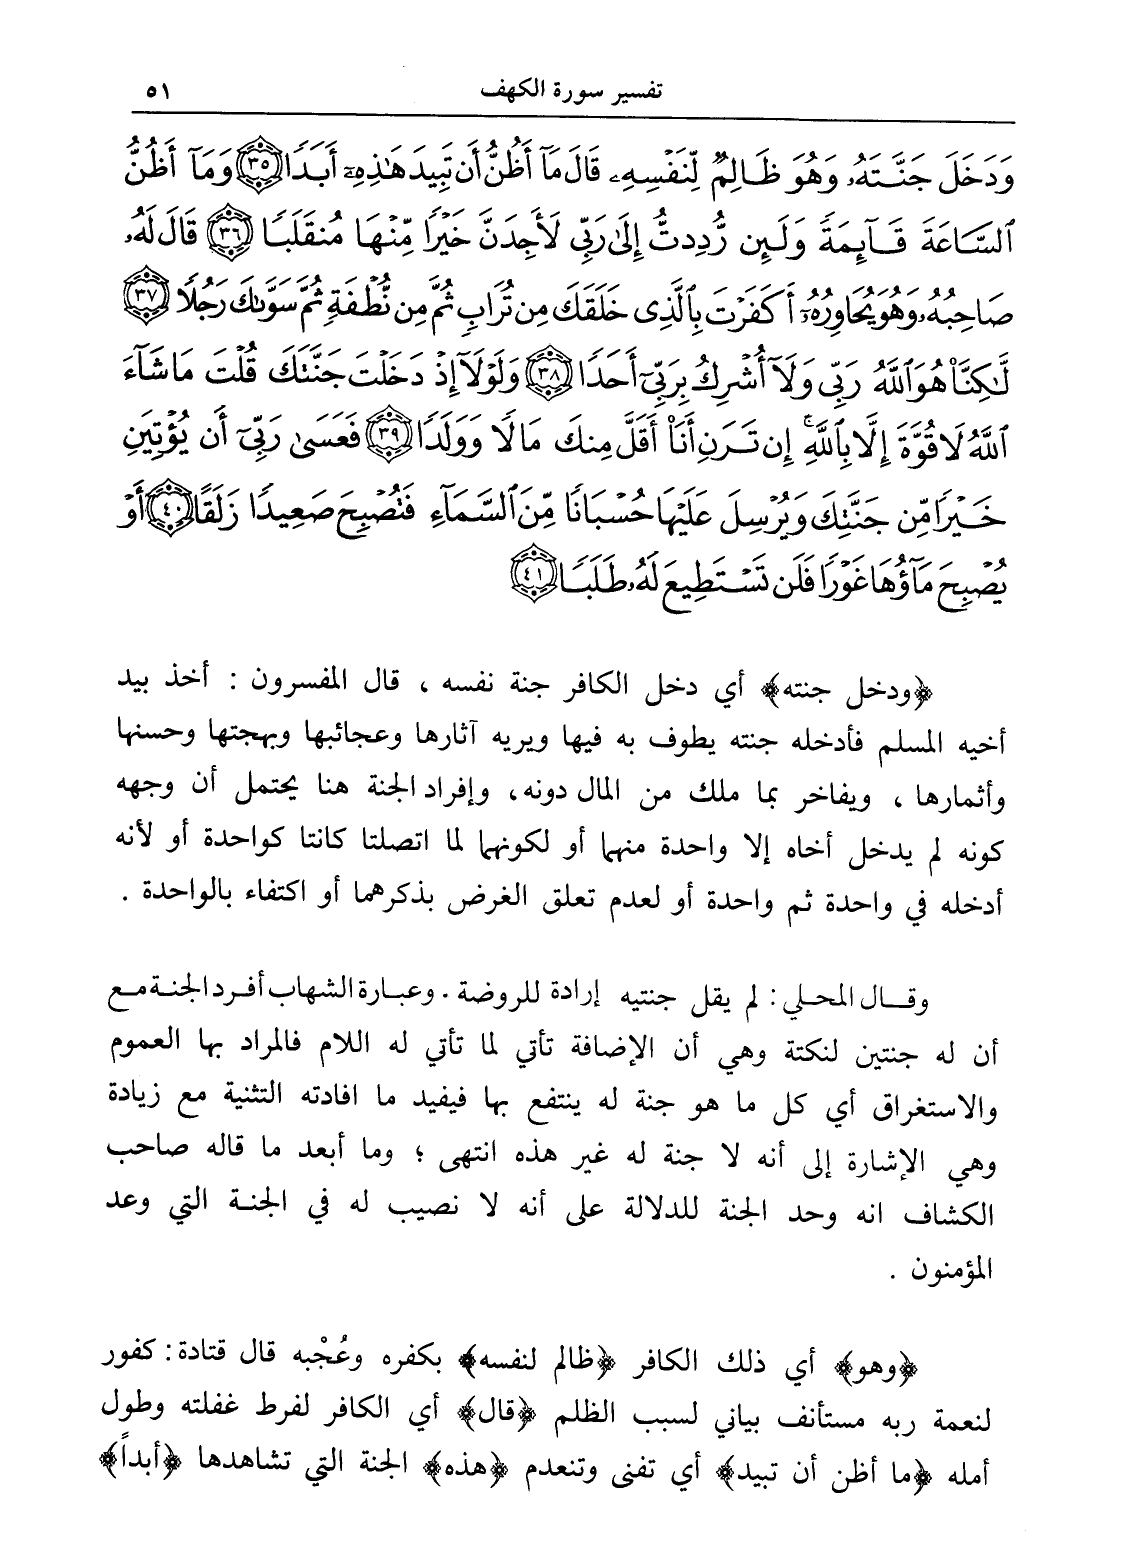 تفسير سورة الكهف ٥١
وَدَخَلَ جَنَّتَهُۥ وَهُوَ ظَالِمٌ لِّنَفْسِهِۦ قَالَ مَآ أَظُنُّ أَن تَبِيدَ هَٰذِهِۦٓ أَبَدًا ﴿٣٥﴾ وَمَآ أَظُنُّ
ٱلسَّاعَةَ قَآئِمَةً وَلَئِن رُّدِدتُّ إِلَىٰ رَبِّى لَأَجِدَنَّ خَيْرًا مِّنْهَا مُنقَلَبًا ﴿٣٦﴾ قَالَ لَهُۥ
صَاحِبُهُۥ وَهُوَ يُحَاوِرُهُۥٓ أَكَفَرْتَ بِٱلَّذِى خَلَقَكَ مِن تُرَابٍ ثُمَّ مِن نُّطْفَةٍ ثُمَّ سَوَّىٰكَ رَجُلًا ﴿٣٧﴾
لَّٰكِنَّا۠ هُوَ ٱللَّهُ رَبِّى وَلَآ أُشْرِكُ بِرَبِّىٓ أَحَدًا ﴿٣٨﴾ وَلَوْلَآ إِذْ دَخَلْتَ جَنَّتَكَ قُلْتَ مَا شَآءَ
ٱللَّهُ لَا قُوَّةَ إِلَّا بِٱللَّهِ ۚ إِن تَرَنِ أَنَا۠ أَقَلَّ مِنكَ مَالًا وَوَلَدًا ﴿٣٩﴾ فَعَسَىٰ رَبِّىٓ أَن يُؤْتِيَنِ
خَيْرًا مِّن جَنَّتِكَ وَيُرْسِلَ عَلَيْهَا حُسْبَانًا مِّنَ ٱلسَّمَآءِ فَتُصْبِحَ صَعِيدًا زَلَقًا ﴿٤٠﴾ أَوْ
يُصْبِحَ مَآؤُهَا غَوْرًا فَلَن تَسْتَطِيعَ لَهُۥ طَلَبًا ﴿٤١﴾
﴿ودخل جنته﴾ أي دخل الكافر جنة نفسه ، قال المفسرون : أخذ بيد
أخيه المسلم فأدخله جنته يطوف به فيها ويريه آثارها وعجائبها وبهجتها وحسنها
وأثمارها ، ويفاخر بما ملك من المال دونه، وإفراد الجنة هنا يحتمل أن وجهه
كونه لم يدخل أخاه إلا واحدة منهما أو لكونهما لما اتصلتا كانتا كواحدة أو لأنه
أدخله في واحدة ثم واحدة أو لعدم تعلق الغرض بذكرهما أو اكتفاء بالواحدة .
وقال المحلي : لم يقل جنتيه إرادة للروضة . وعبارة الشهاب أفرد الجنة مع
أن له جنتين لنكتة وهي أن الإضافة تأتي لما تأتي له اللام فالمراد بها العموم
والاستغراق أي كل ما هو جنة له ينتفع بها فيفيد ما افادته التثنية مع زيادة
وهي الإشارة إلى أنه لا جنة له غير هذه انتهى ؛ وما أبعد ما قاله صاحب
الكشاف انه وحد الجنة للدلالة على أنه لا نصيب له في الجنة التي وعد
المؤمنون .
﴿وهو﴾ أي ذلك الكافر ﴿ظالم لنفسه﴾ بكفره وعُجْبه قال قتادة : كفور
لنعمة ربه مستأنف بياني لسبب الظلم ﴿قال﴾ أي الكافر لفرط غفلته وطول
أمله ﴿ما أظن أن تبيد﴾ أي تفنى وتنعدم ﴿هذه﴾ الجنة التي تشاهدها ﴿أبداً﴾